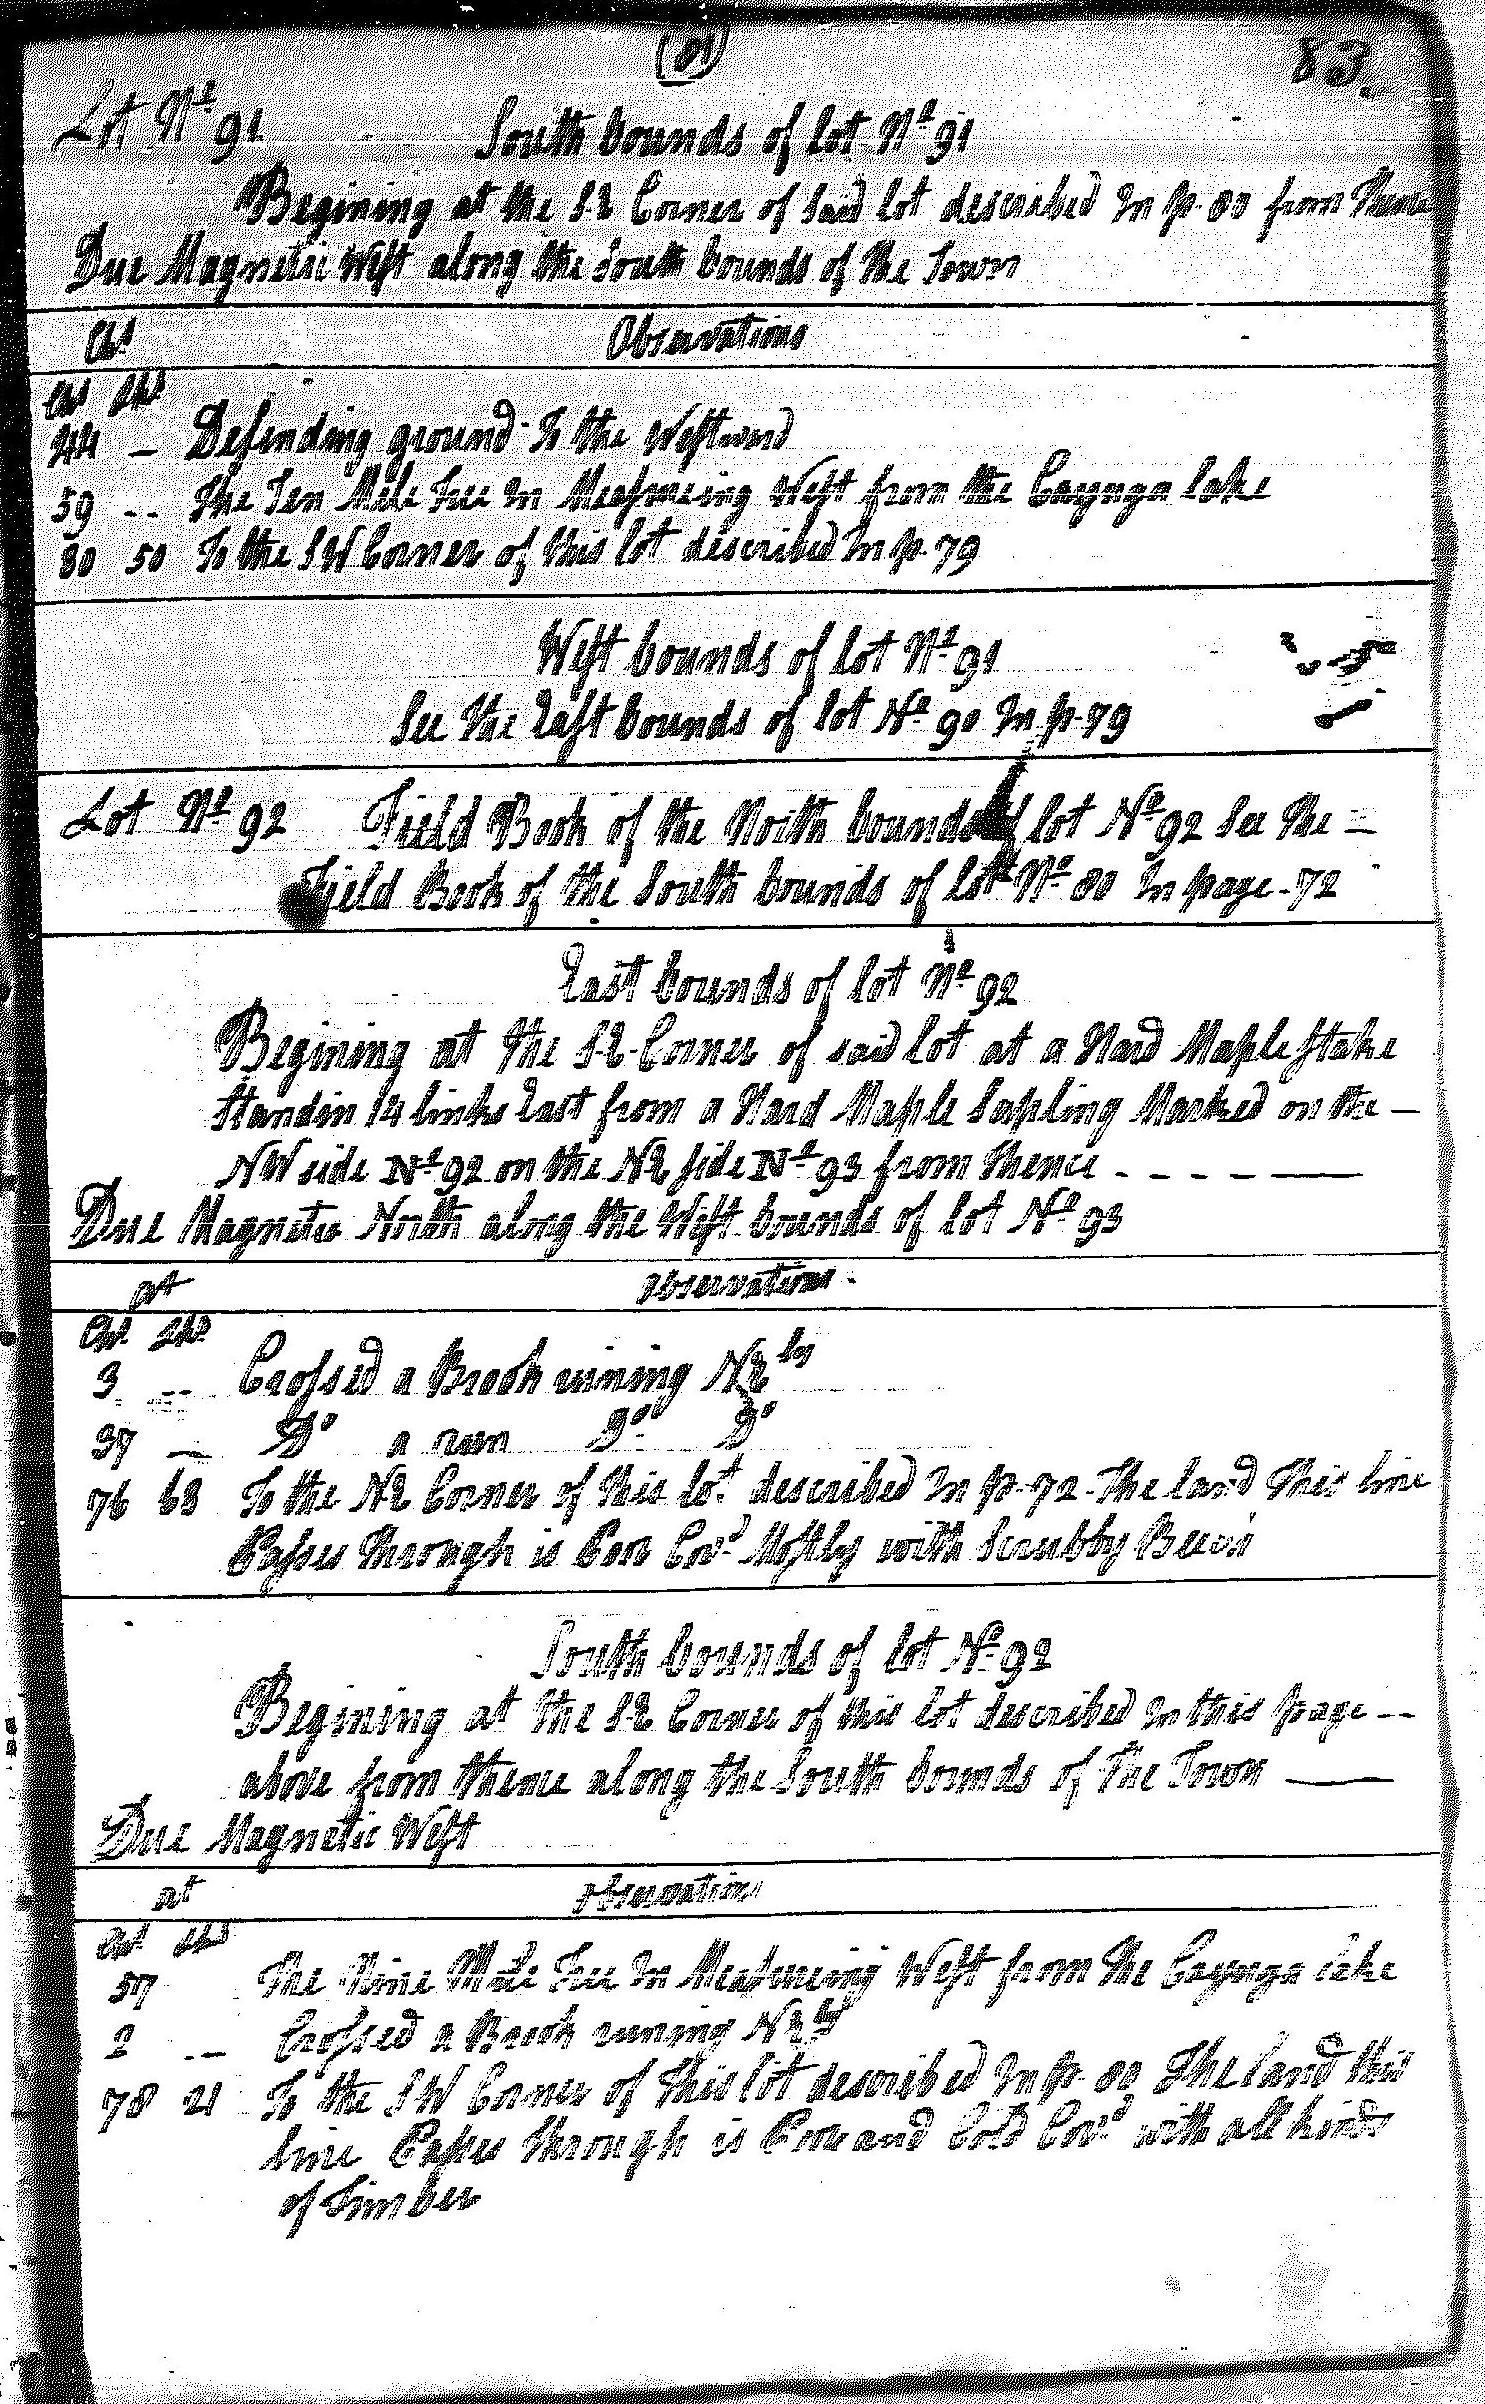 (81)
83.
Lot No 91 South bounds of lot No 91
Begining at the S.E Corner of Said lot described In p. 80 from Thence
Due Magnetic West along the South bounds of the Town
Chs Observations
Chs Lks
44 — Desending ground to the Westward
59 -- The Ten Mile Tree In Measureing West from the Cayuga Lake
80 50 To the SW Corner of this lot described In p. 79
West bounds of lot No 91
See the East bounds of lot No 90 In p. 79
Lot No 92 Field Book of the North bounds of lot No 92 See The —
Field Book of the South bounds of lot No 80 In page - 72
East bounds of lot No 92
Begining at the S.E. Corner of said lot at a Hard Maple Stake
Standin 14 links East from a Hard Maple Sapling Marked on the —
NW side No 92 on the NE side No 93 from Thence - - - - —
Due Magnetic North along the West bounds of lot No 93
at Observations
Chs Lks
3 -- Crossed a Brook runing NEly
37 — Do a run Do Do
76 63 To the NE Corner of this lot described In p. 72 - The land This line
Passes through is Poor Covd Mostly with Scrubby Beech
South bounds of lot No 92
Begining at the S.E Corner of this lot described In this page --
above from thence along the South bounds of The Town —
Due Magnetic West
at Observations
Chs Lks
57 The Nine Mile Tree In Measureing West from The Cayuga Lake
2 -- Crossed a Brook runing NEly
78 21 To the SW Corner of This lot described In p. 80 The land this
line Passes through is Poor and Cold Covd with all kinds
of Timber